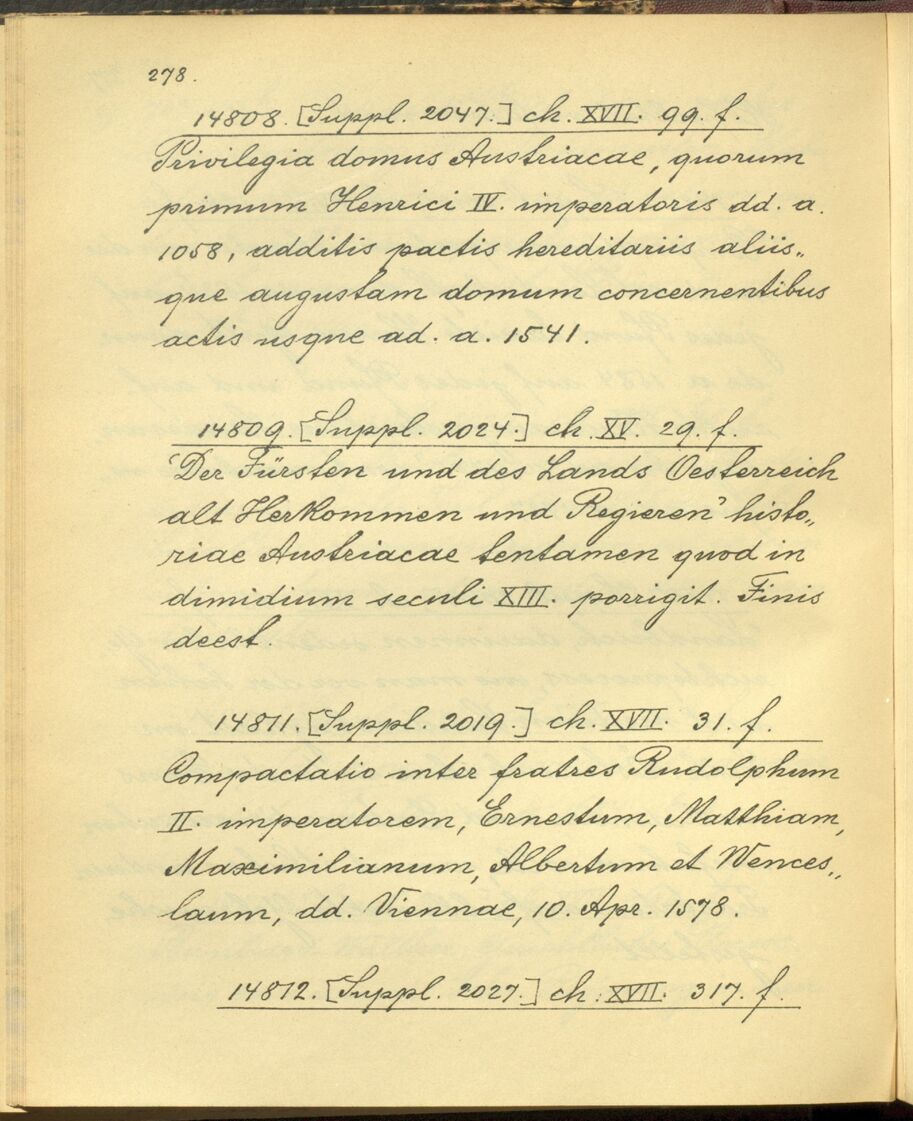 278.
14808. [Suppl. 2047.] ch. XVII. 99. f.
Privilegia domus Austriacae, quorum
primum Henrici IV. imperatoris dd. a.
1058, additis pactis hereditariis aliis„
que augustam domum concernentibus
actis usque ad. a. 1541.
14809. [Suppl. 2024.] ch. XV. 29. f.
‘Der Fürsten und des Lands Oesterreich
alt Herkommen und Regieren’ histo„
riae Austriacae tentamen quod in
dimidium seculi XIII. porrigit. Finis
deest.
14811. [Suppl. 2019.] ch. XVII. 31. f.
Compactatio inter fratres Rudolphum
II. imperatorem, Ernestum, Matthiam,
Maximilianum, Albertum et Wences„
laum, dd. Viennae, 10. Apr. 1578.
14812. [Suppl. 2027.] ch. XVII. 317. f.